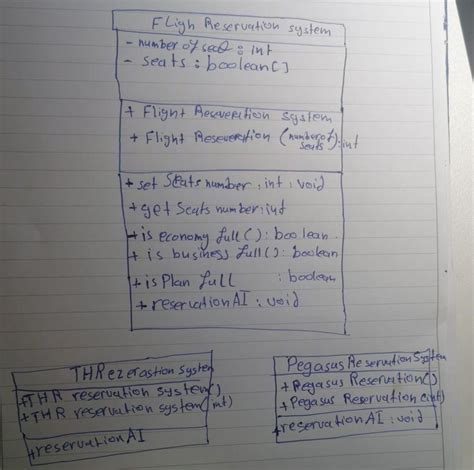 FLigh Reservation system
- number of seat : int
- seats : boolean[]
+ Flight Reseveration system
+ Flight Reseveration (number of seats) : int
+ set Seats number : int : void
+ get Seats number : int
+ is economy full() : boolean
+ is business full() : boolean
+ is Plan full : boolean
+ reservationAI : void
THRezerastion System
+THR reservation system()
+THR reservation system(int)
+reservationAI
Pegasus Reservation System
+Pegasus Reservation()
+Pegasus Reservation(int)
+reservationAI : void